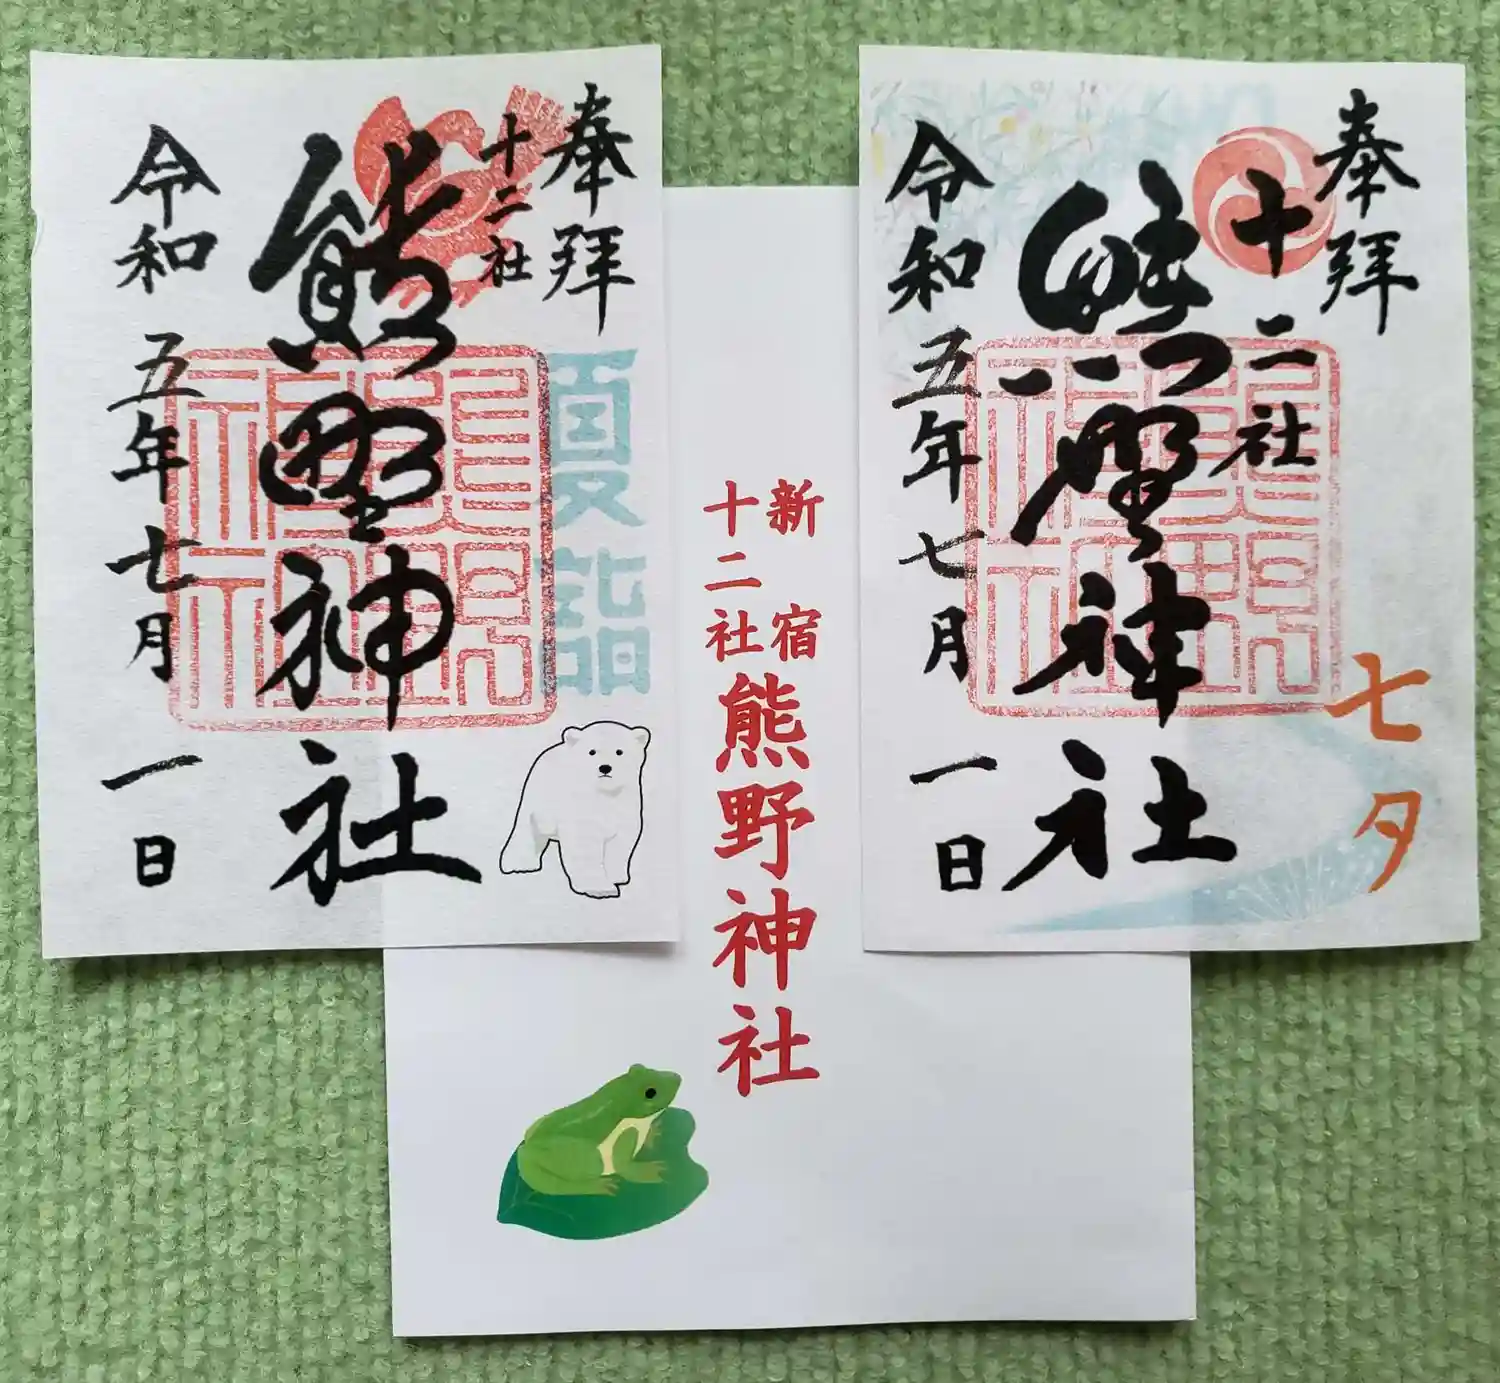 奉拝
十二社
熊野神社
令和五年七月一日
夏詣
熊野神社
新宿
十二社
熊野神社
奉拝
十二社
熊野神社
令和五年七月一日
七夕